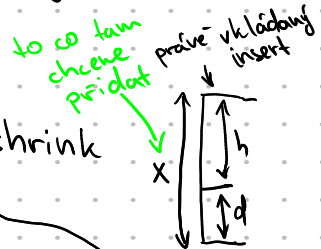 to co tam
chceme
přidat
právě vkládaný
insert
shrink
x
h
d